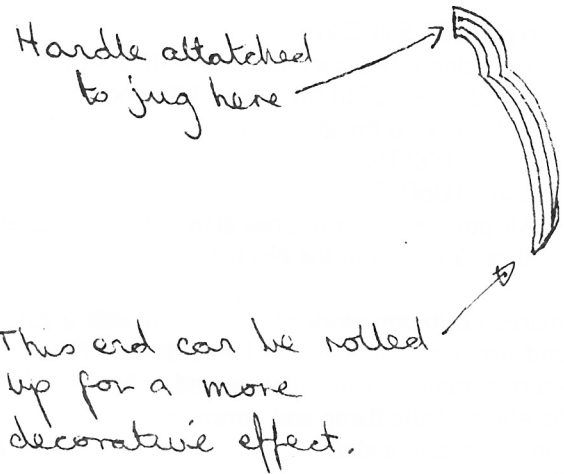 Handle attatched
to jug here
This end can be rolled
up for a more
decorative effect.